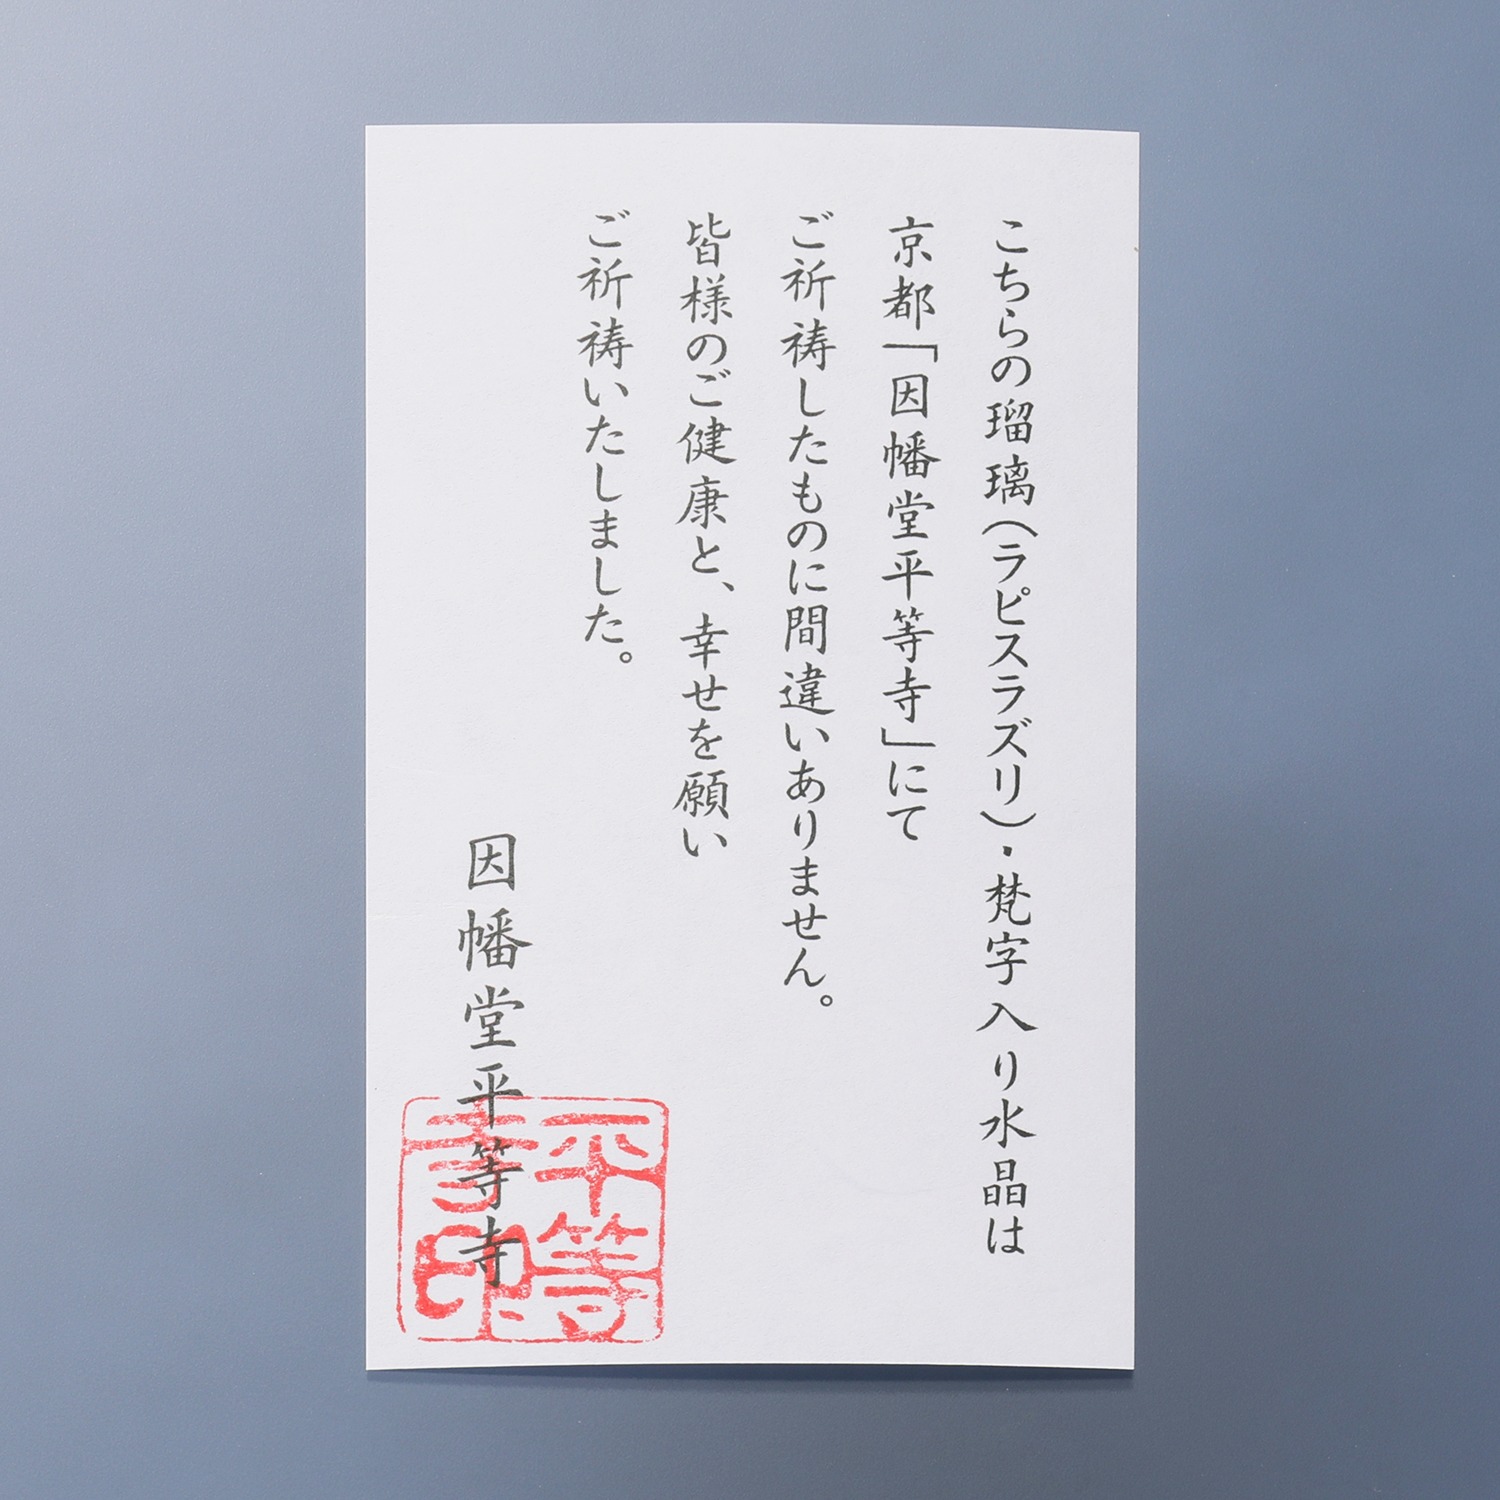 こちらの瑠璃(ラピスラズリ)・梵字入り水晶は
京都「因幡堂平等寺」にて
ご祈祷したものに間違いありません。
皆様のご健康と、幸せを願い
ご祈祷いたしました。
因幡堂平等寺
平等
寺印